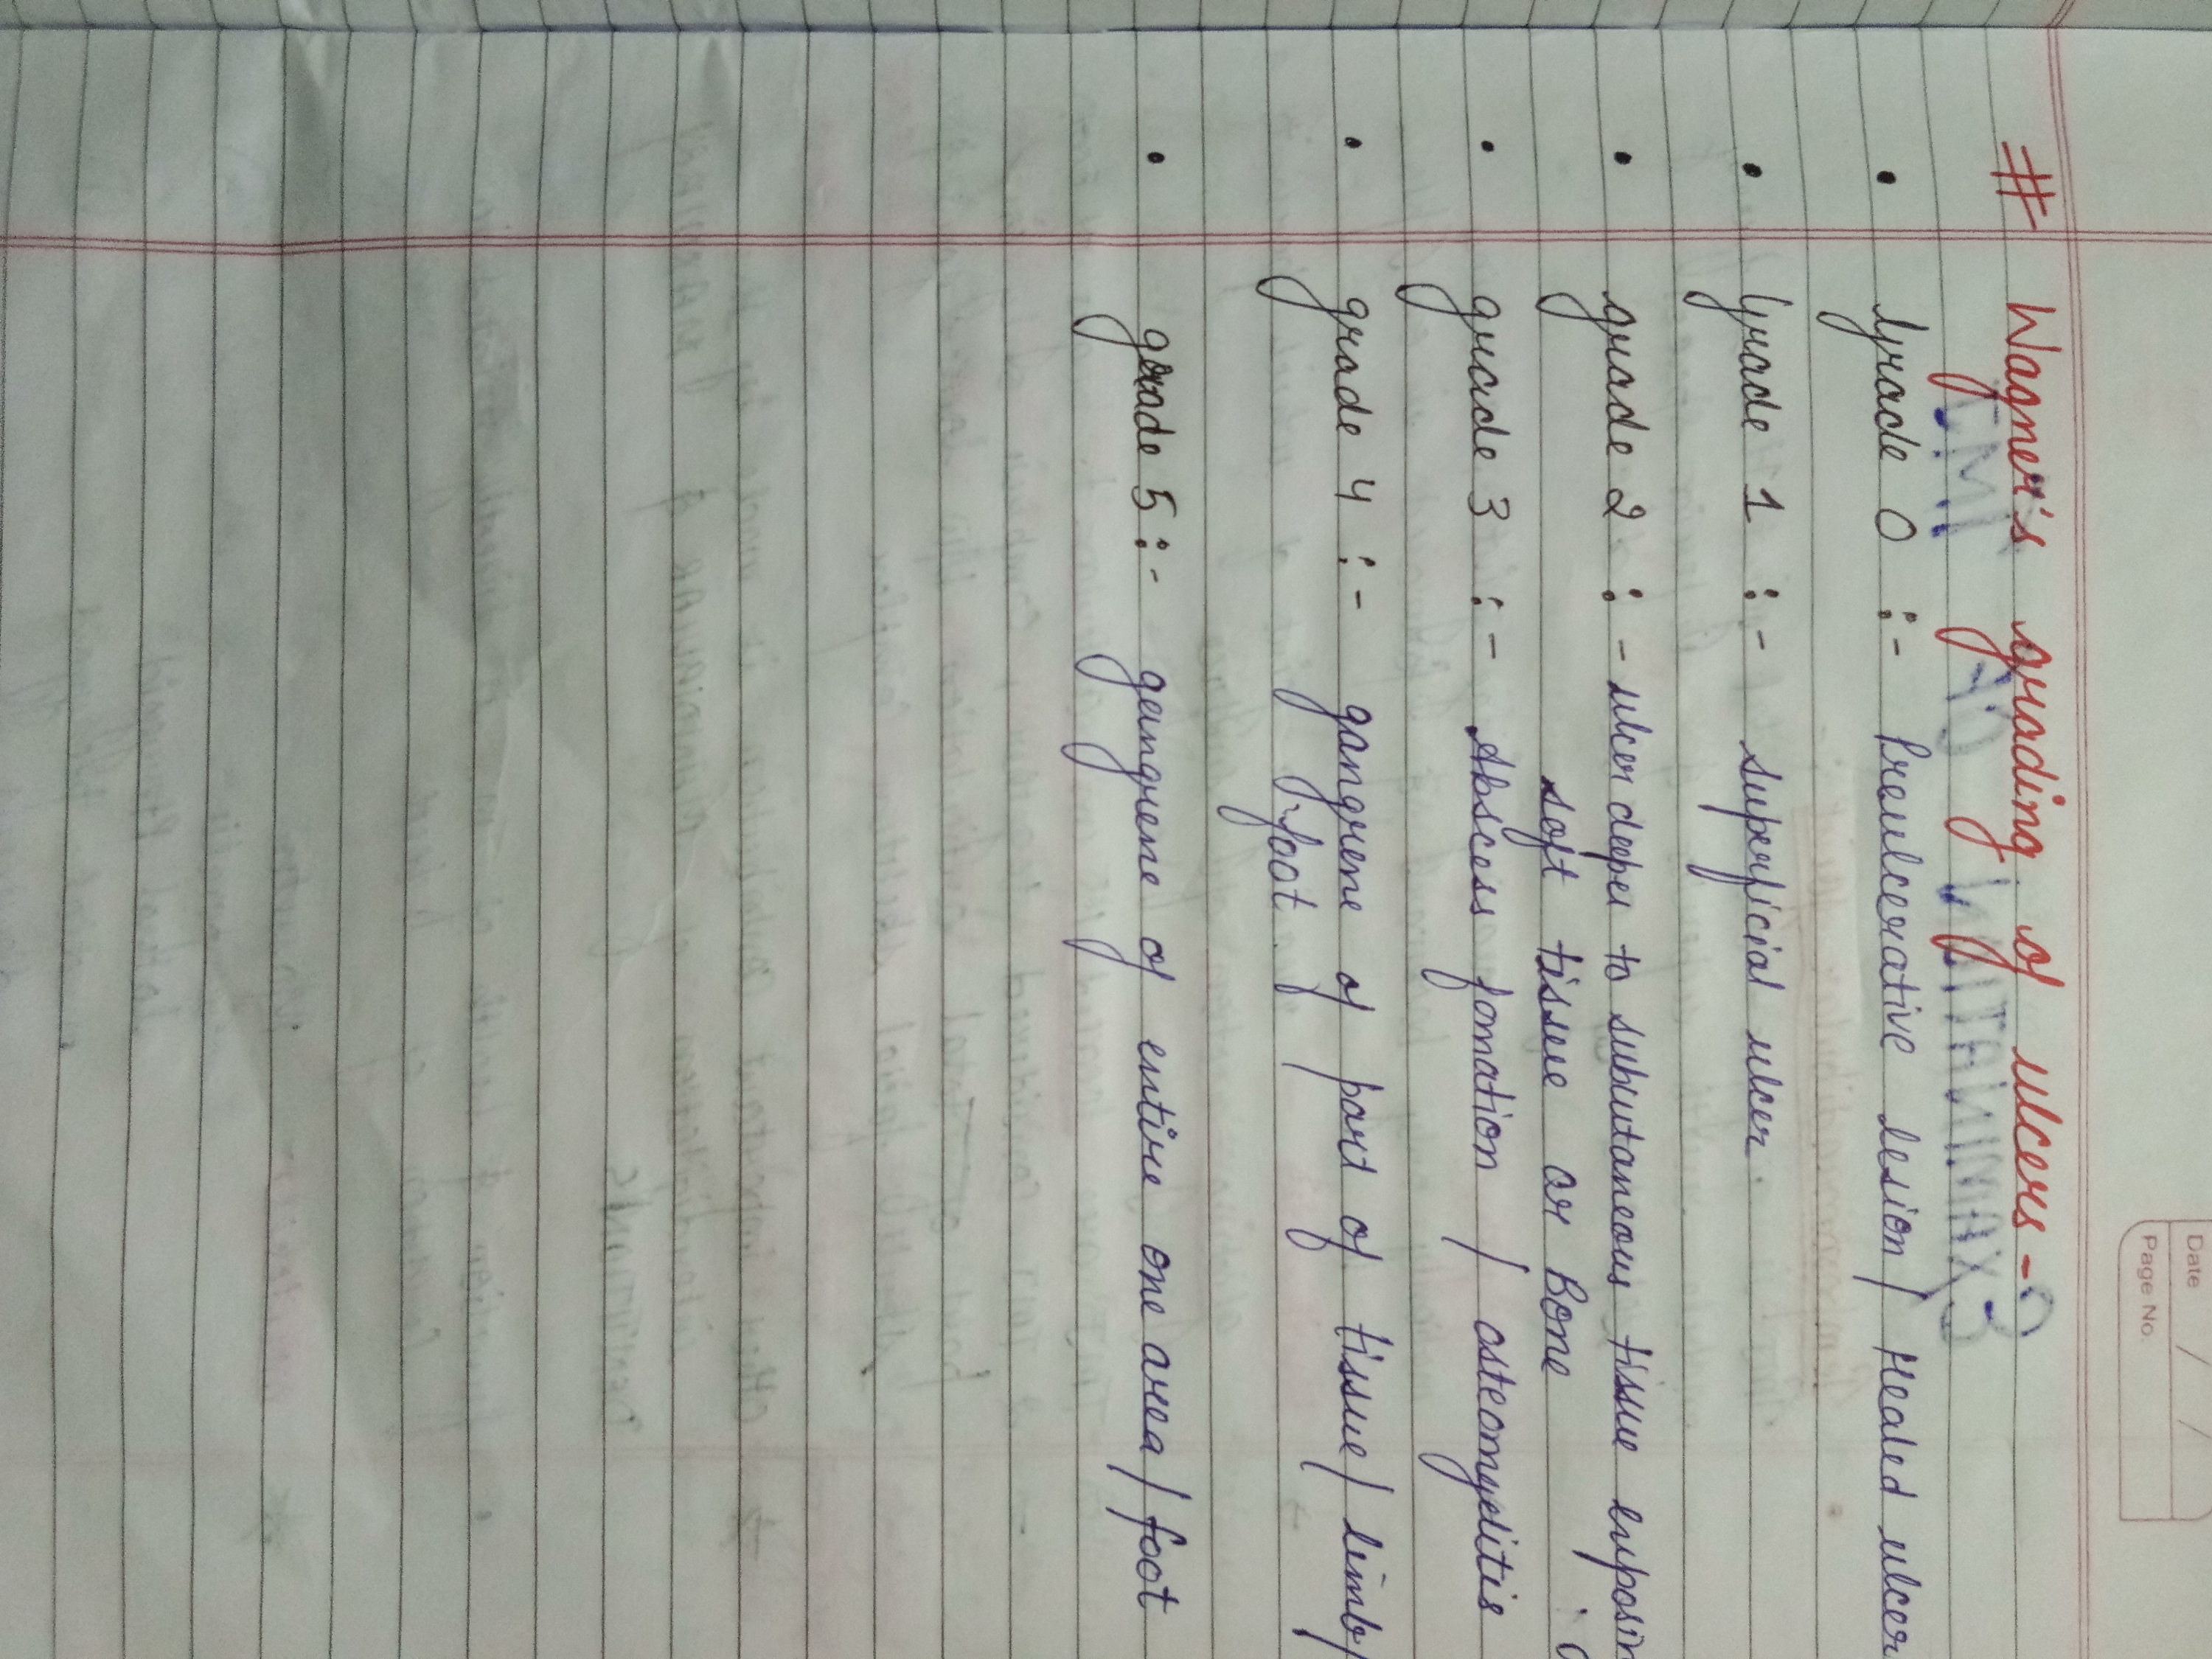 Date / /
Page No.
# Wagner's grading of ulcers -
• Grade 0 :- Preulcerative lesion/ Healed ulcer
• Grade 1 :- superficial ulcer.
• grade 2 :- ulcer deeper to subcutaneous tissue exposin
soft tissue or Bone
• grade 3 :- Abscess fomation / osteomyelitis
• grade 4 :- gangrene of part of tissue/ limb/
foot.
• grade 5 :- gangrene of entire one area/foot